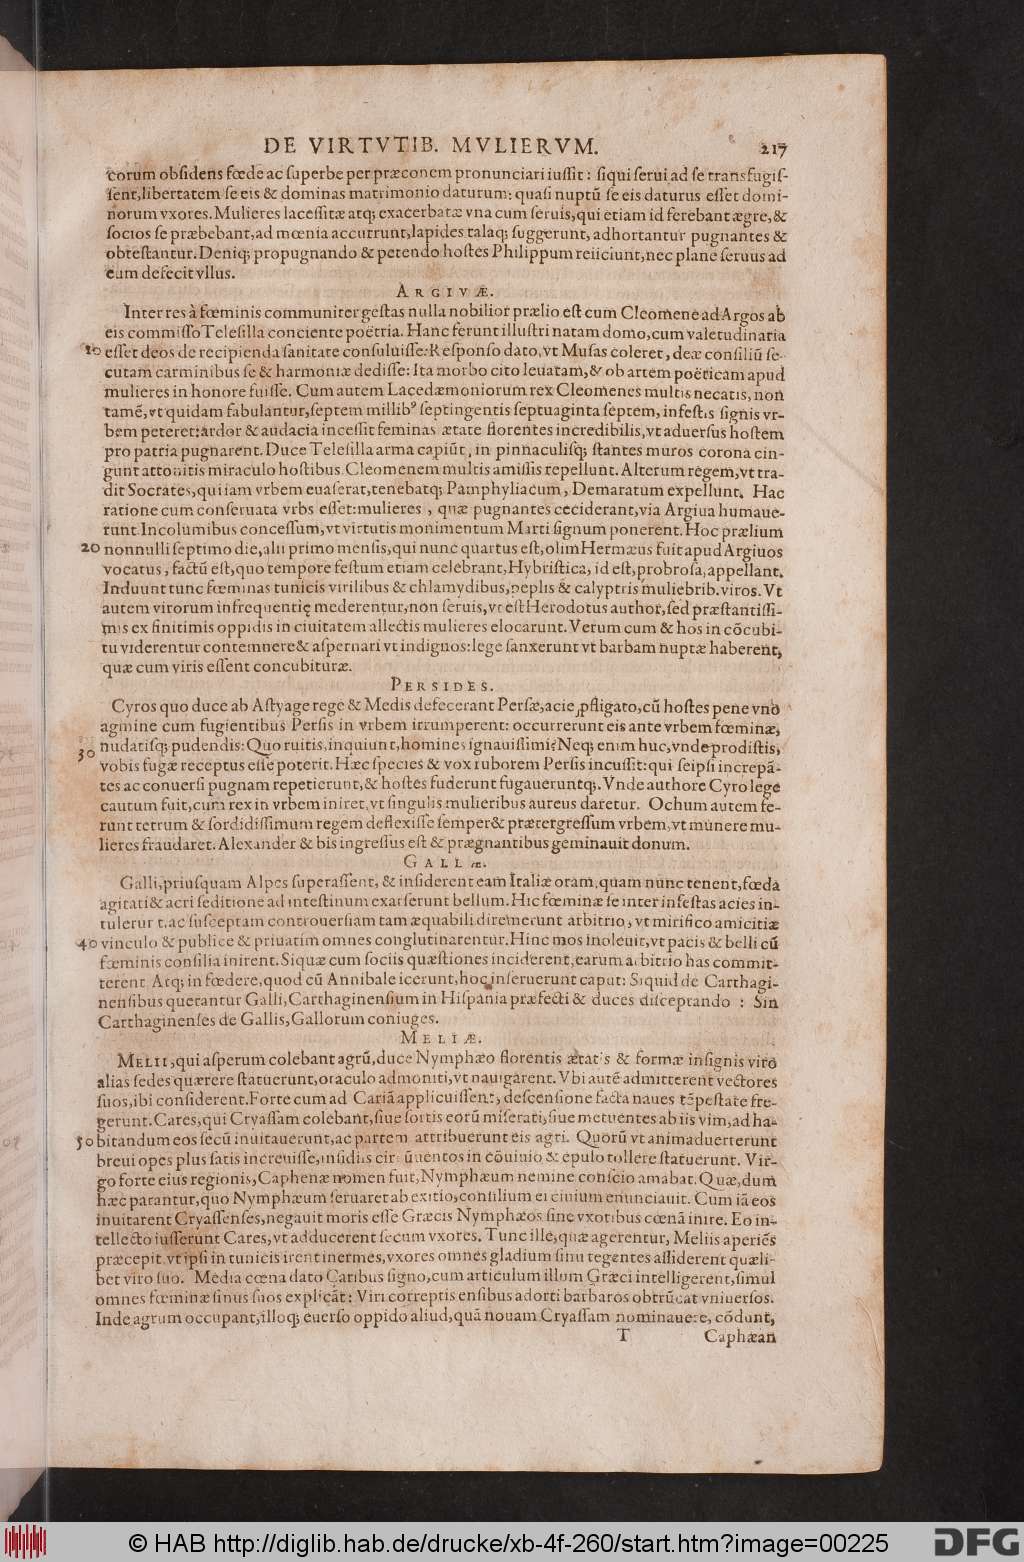 DE VIRTVTIB. MVLIERVM. 217
corum obsidens fœde ac superbe per præconem pronunciari iussit: siqui serui ad se transfugis-
sent, libertatem se eis & dominas matrimonio daturum: quasi nuptũ se eis daturus esset domi-
norum vxores. Mulieres lacessitæ atq; exacerbatæ vna cum seruis, qui etiam id ferebant ægre, &
socios se præbebant, ad mœnia accurrunt, lapides talaq; suggerunt, adhortantur pugnantes &
obtestantur. Deniq; propugnando & petendo hostes Philippum reiiciunt, nec plane seruus ad
eum defecit vllus.
ARGIVÆ.
Inter res à fœminis communiter gestas nulla nobilior prælio est cum Cleomene ad Argos ab
eis commisso Telesilla conciente poëtria. Hanc ferunt illustri natam domo, cum valetudinaria
10 esset deos de recipienda sanitate consuluisse: Responso dato, vt Musas coleret, deæ consiliũ se-
cutam carminibus se & harmoniæ dedisse: Ita morbo cito leuatam, & ob artem poëticam apud
mulieres in honore fuisse. Cum autem Lacedæmoniorum rex Cleomenes multis necatis, non
tamẽ, vt quidam fabulantur, septem millibꝰ septingentis septuaginta septem, infestis signis vr-
bem peteret: ardor & audacia incessit feminas ætate florentes incredibilis, vt aduersus hostem
pro patria pugnarent. Duce Telesilla arma capiũt, in pinnaculisq; stantes muros corona cin-
gunt attonitis miraculo hostibus. Cleomenem multis amissis repellunt. Alterum regem, vt tra-
dit Socrates, qui iam vrbem euaserat, tenebatq; Pamphyliacum, Demaratum expellunt. Hac
ratione cum conseruata vrbs esset: mulieres, quæ pugnantes ceciderant, via Argiua humaue-
runt. Incolumibus concessum, vt virtutis monimentum Marti signum ponerent. Hoc prælium
20 nonnulli septimo die, alii primo mensis, qui nunc quartus est, olim Hermæus fuit apud Argiuos
vocatus, factũ est, quo tempore festum etiam celebrant, Hybristica, id est, probrosa, appellant.
Induunt tunc fœminas tunicis virilibus & chlamydibus, peplis & calyptris muliebrib. viros. Vt
autem virorum infrequentię mederentur, non seruis, vt est Herodotus author, sed præstantissi-
mis ex finitimis oppidis in ciuitatem allectis mulieres elocarunt. Verum cum & hos in cõcubi-
tu viderentur contemnere & aspernari vt indignos: lege sanxerunt vt barbam nuptæ haberent,
quæ cum viris essent concubituræ.
PERSIDES.
Cyros quo duce ab Astyage rege & Medis defecerant Persæ, acie ꝓfligato, cũ hostes pene vno
agmine cum fugientibus Persis in vrbem irrumperent: occurrerunt eis ante vrbem fœminæ,
30 nudatisq; pudendis: Quo ruitis, inquiunt, homines ignauissimi? Neq; enim huc, vnde prodistis,
vobis fugæ receptus esse poterit. Hæc species & vox ruborem Persis incussit: qui seipsi increpã-
tes ac conuersi pugnam repetierunt, & hostes fuderunt fugaueruntq;. Vnde authore Cyro lege
cautum fuit, cum rex in vrbem iniret, vt singulis mulieribus aureus daretur. Ochum autem fe-
runt tetrum & sordidissimum regem deflexisse semper & prætergressum vrbem, vt munere mu-
lieres fraudaret. Alexander & bis ingressus est & prægnantibus geminauit donum.
GALLæ.
Galli, priusquam Alpes superassent, & insiderent eam Italiæ oram, quam nunc tenent, fœda
agitati & acri seditione ad intestinum exarserunt bellum. Hic fœminæ se inter infestas acies in-
tulerunt, ac susceptam controuersiam tam æquabili diremerunt arbitrio, vt mirifico amicitiæ
40 vinculo & publice & priuatim omnes conglutinarentur. Hinc mos inoleuit, vt pacis & belli cũ
fœminis consilia inirent. Siquæ cum sociis quæstiones inciderent, earum arbitrio has commit-
terent. Atq; in fœdere, quod cũ Annibale icerunt, hoc inseruerunt caput: Siquid de Carthagi-
nensibus querantur Galli, Carthaginensium in Hispania præfecti & duces disceptando: Sin
Carthaginenses de Gallis, Gallorum coniuges.
MELIÆ.
MELII, qui asperum colebant agrũ, duce Nymphæo florentis ætatis & formæ insignis viro
alias sedes quærere statuerunt, oraculo admoniti, vt nauigarent. Vbi autẽ admitterent vectores
suos, ibi considerent. Forte cum ad Cariã applicuissent, descensione facta naues tẽpestate fre-
gerunt. Cares, qui Cryassam colebant, siue sortis eorũ miserati, siue metuentes ab iis vim, ad ha-
50 bitandum eos secũ inuitauerunt, ac partem attribuerunt eis agri. Quorũ vt animaduerterunt
breui opes plus satis increuisse, insidiis circũuentos in cõuiuio & epulo tollere statuerunt. Vir-
go forte eius regionis, Caphenæ nomen fuit, Nymphæum nemine conscio amabat. Quæ, dum
hæc parantur, quo Nymphæum seruaret ab exitio, consilium ei ciuium enunciauit. Cum iã eos
inuitarent Cryassenses, negauit moris esse Græcis Nymphæos sine vxoribus cœnã inire. Eo in-
tellecto iusserunt Cares, vt adducerent secum vxores. Tunc ille, quæ agerentur, Meliis aperiẽs
præcepit vt ipsi in tunicis irent inermes, vxores omnes gladium sinu tegentes assiderent quæli-
bet viro suo. Media cœna dato Caribus signo, cum articulum illum Græci intelligerent, simul
omnes fœminæ sinus suos explicãt: Viri correptis ensibus adorti barbaros obtrũcat vniuersos.
Inde agrum occupant, illoq; euerso oppido aliud, quã nouam Cryassam nominauere, cõdunt,
T Caphæan
© HAB http://diglib.hab.de/drucke/xb-4f-260/start.htm?image=00225
DFG